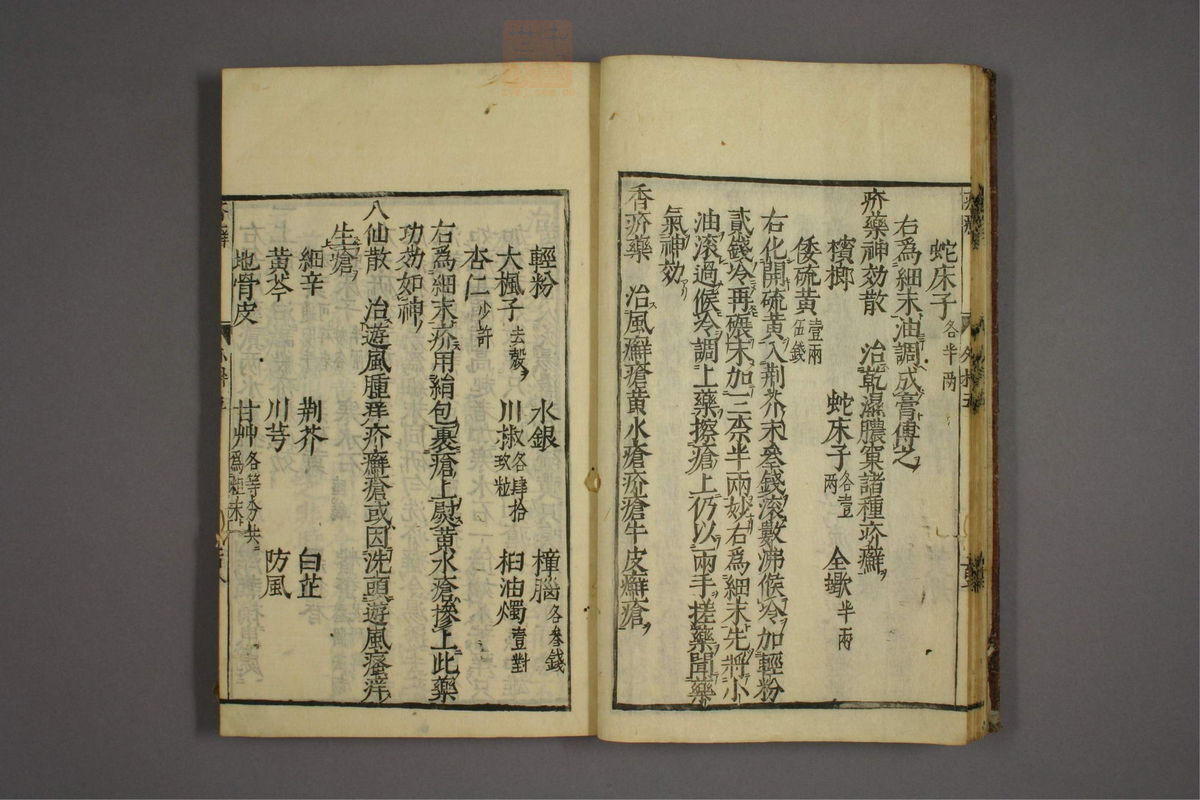 蛇床子各半兩
右為細末油調成膏傅之
疥藥神効散　治乾濕膿窠諸種疥癬
檳榔　蛇床子各壹兩　全蝎半兩
倭硫黃壹兩伍錢
右化開硫黃入荆芥末叄錢滚數沸候冷加輕粉
貳錢冷再碾末加三柰半兩妙右為細末先將小
油滚過候冷調上藥擦瘡上仍以兩手搓藥聞藥
氣神効
香疥藥　治風癬瘡黃水瘡疥瘡牛皮癬瘡
輕粉　水銀　樟腦各叄錢
大楓子去殼　川椒各肆拾玖粒　桕油燭壹對
杏仁少許
右為細末疥用絹包裹瘡上熨黃水瘡摻上此藥
功効如神
八仙散　治遊風腫痒疥癬瘡或因洗頭遊風瘙痒
生瘡
細辛　荆芥　白芷
黃芩　川芎　防風
地骨皮　甘艸各等分共為粗末